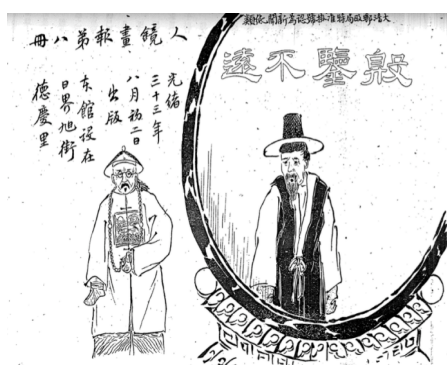 大清郵政局特准掛號認為新聞紙類
殷鑒不遠
人鏡畫報第八冊
光緒
三十三年
八月初二日
出版
本館設在
日界旭街
德慶里